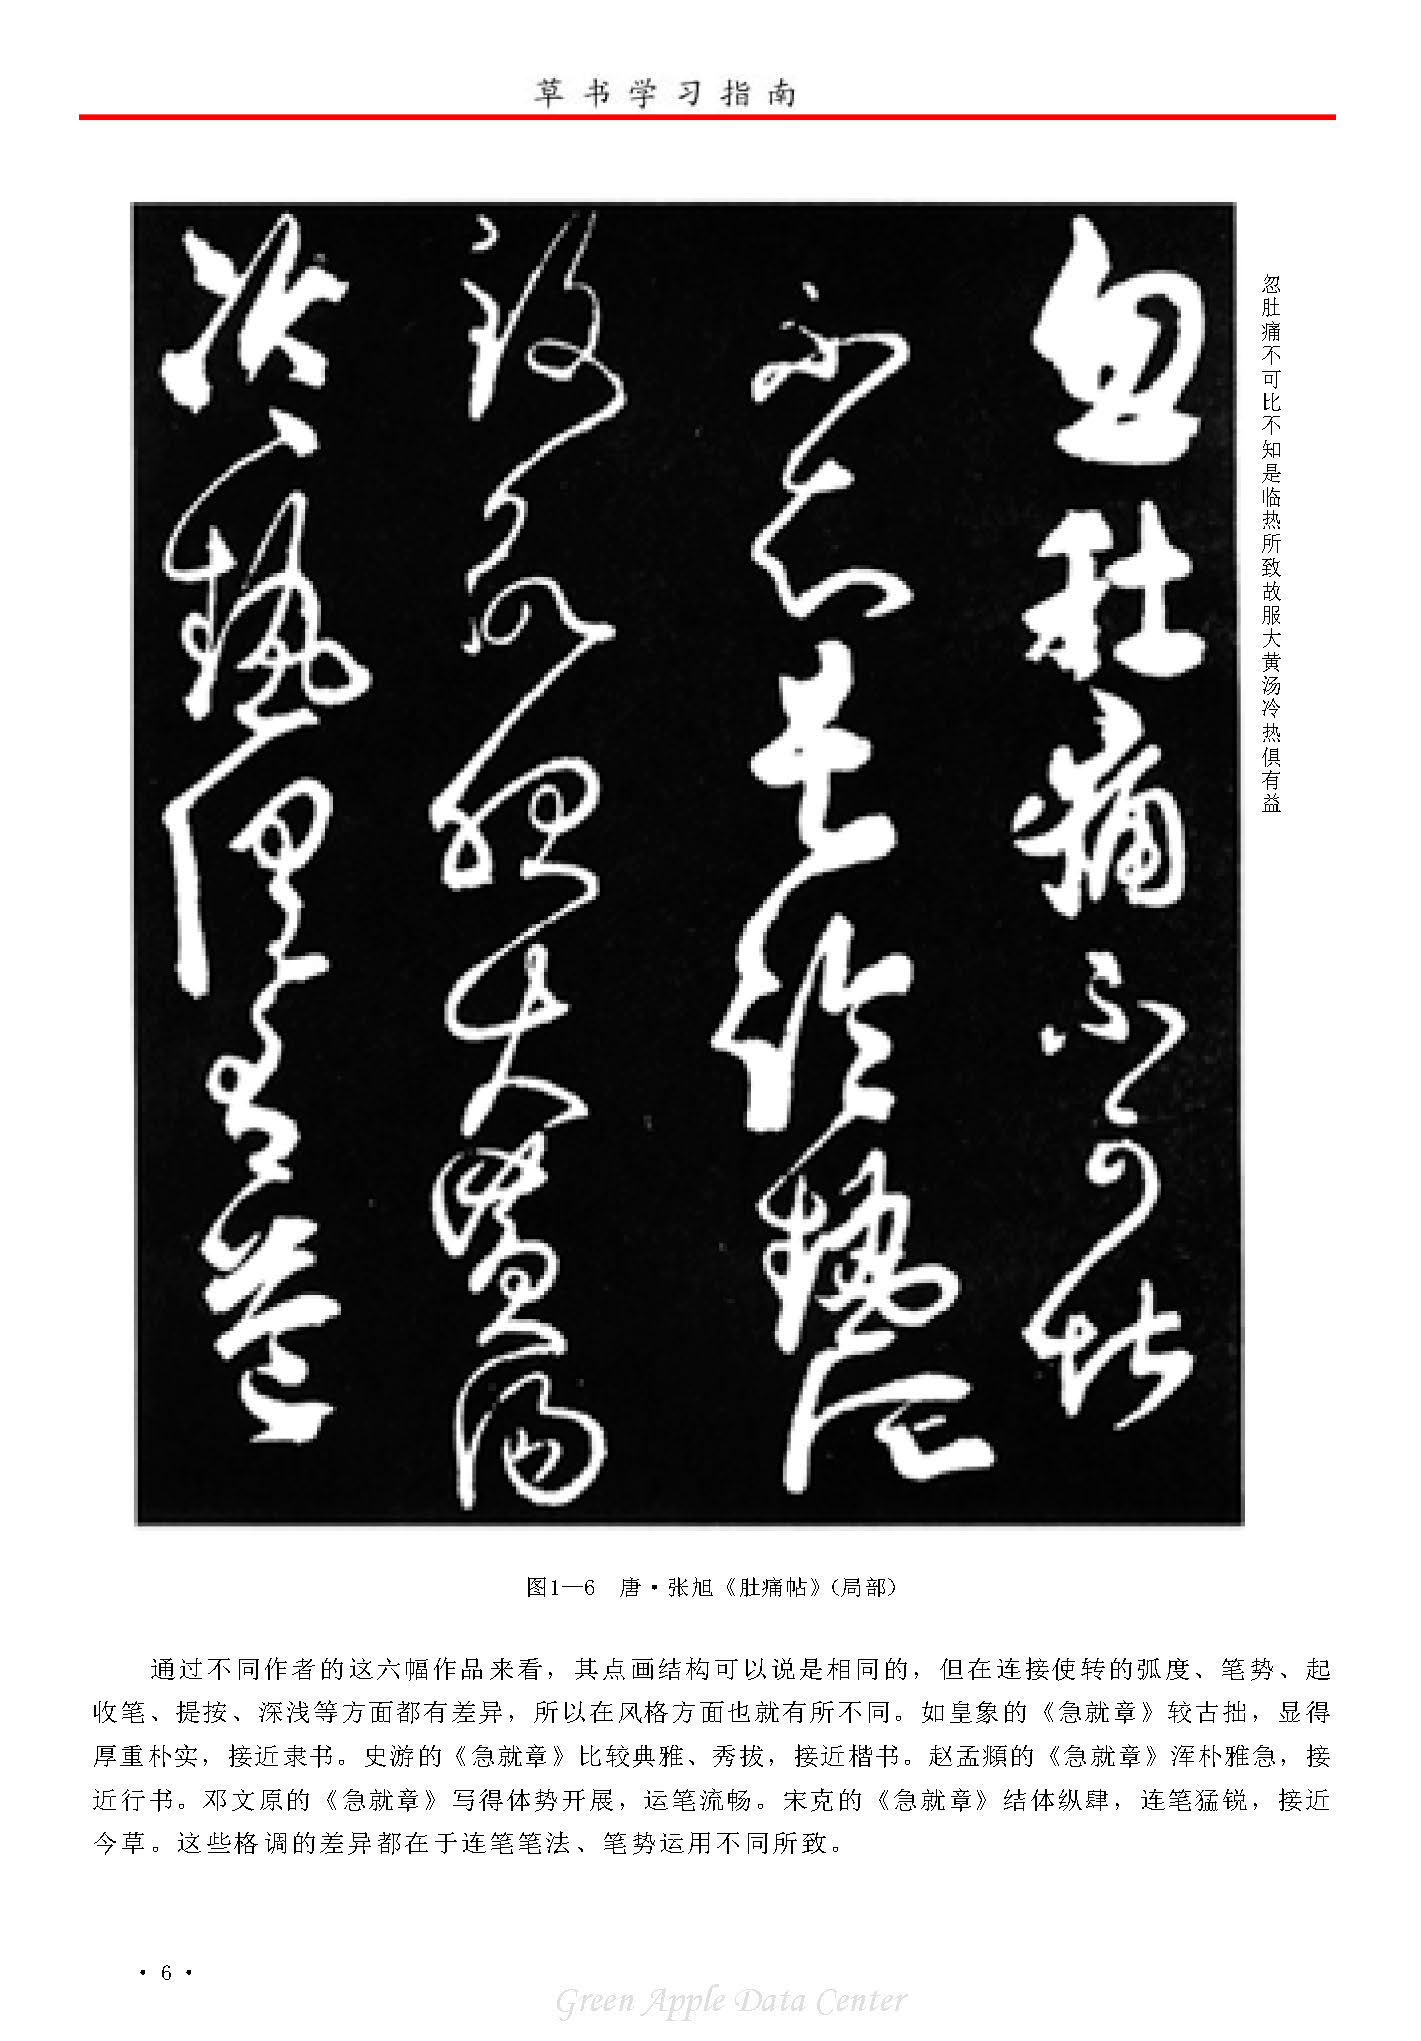 草书学习指南
忽肚痛不可比不知是临热所致故服大黄汤冷热俱有益
忽肚痛不可堪
不知是冷热所
致取服大黄汤
冷热俱有益
图1—6　唐·张旭《肚痛帖》（局部）
通过不同作者的这六幅作品来看，其点画结构可以说是相同的，但在连接使转的弧度、笔势、起
收笔、提按、深浅等方面都有差异，所以在风格方面也就有所不同。如皇象的《急就章》较古拙，显得
厚重朴实，接近隶书。史游的《急就章》比较典雅、秀拔，接近楷书。赵孟頫的《急就章》浑朴雅急，接
近行书。邓文原的《急就章》写得体势开展，运笔流畅。宋克的《急就章》结体纵肆，连笔猛锐，接近
今草。这些格调的差异都在于连笔笔法、笔势运用不同所致。
· 6 ·
Green Apple Data Center